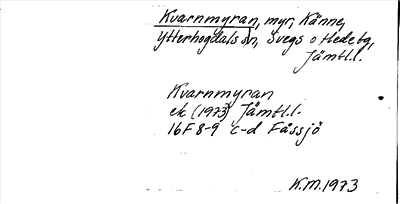 Kvarnmyran, myr, Känne,
Ytterhogdals sn, Svegs o Hede tg,
Jämtl.l.
Kvarnmyran
ek (1973) Jämtl.l.
16F 8-9 c-d Fåssjö
K.M. 1973